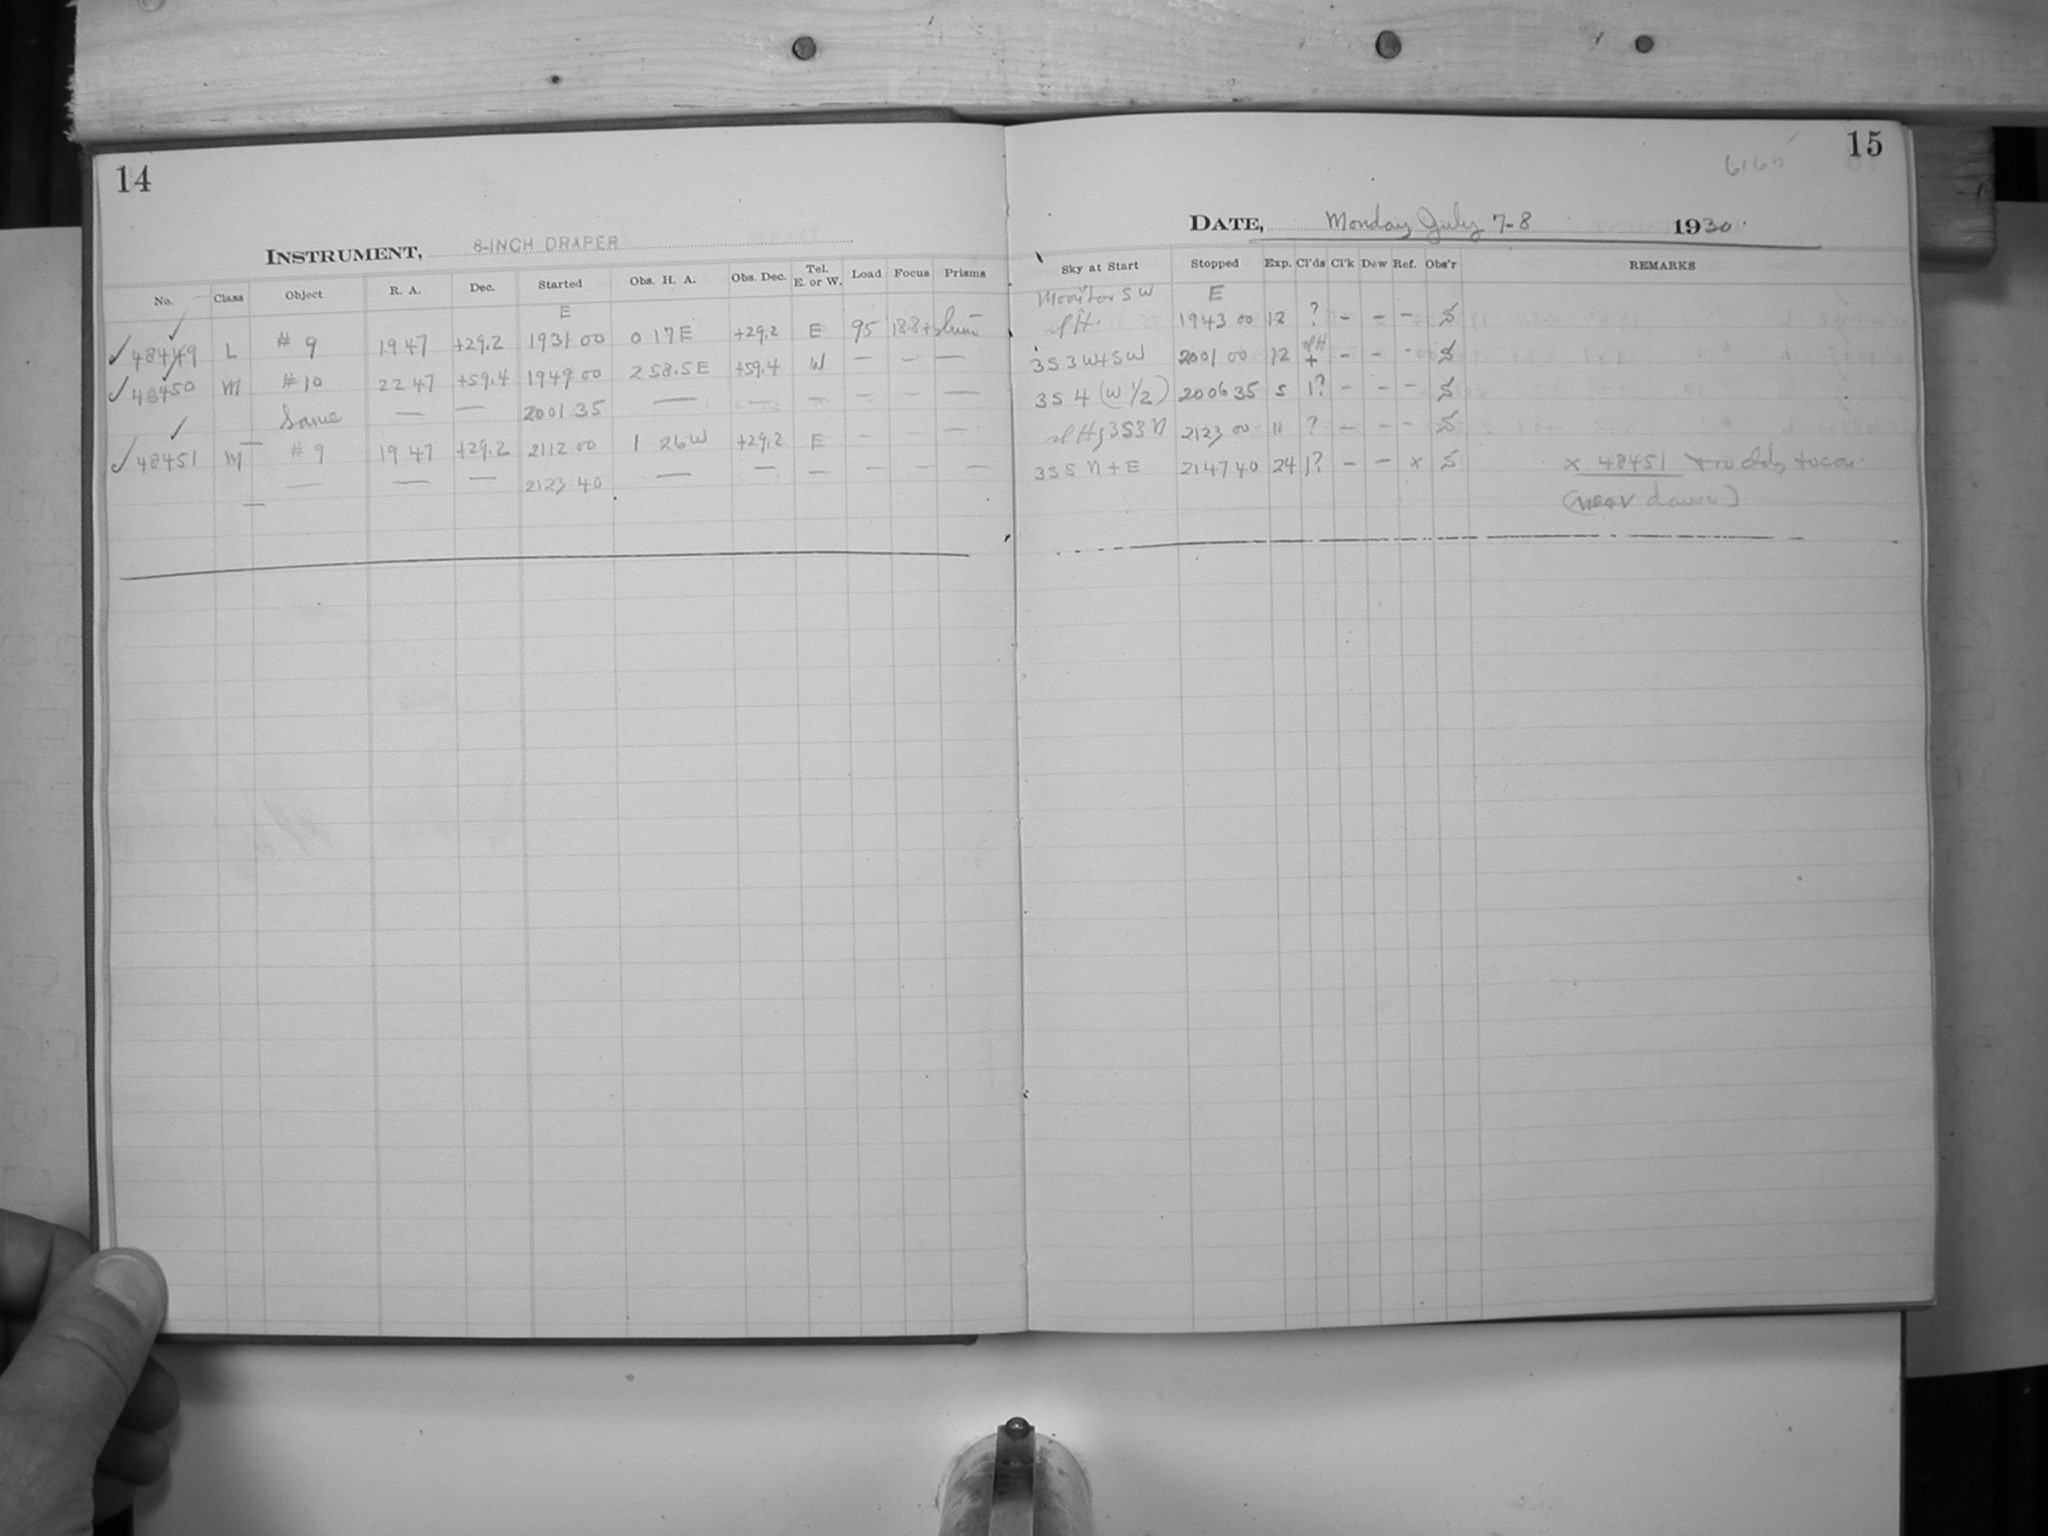 14
INSTRUMENT, 8-INCH DRAPER
No. Class Object R. A. Dec. Started Obs. H. A. Obs. Dec. Tel. E. or W. Load Focus Prisms
E
48449 L # 9 19 47 +29.2 1931 00 0 17 E +29.2 E 95 188+
48450 M # 10 22 47 +59.4 1949 00 2 58.5 E +59.4 W — — —
Same — — 2001 35 — — — — — —
48451 M # 9 19 47 +29.2 2112 00 1 26 W +29.2 E — — —
— — — 2123 40 — — — — — —
15
6165
DATE, Monday July 7-8 1930.
Sky at Start Stopped Exp. Cl'ds Cl'k Dew Ref. Obs'r REMARKS
SW E
1943 00 12 ? – – – S
3S3W+SW 2001 00 12 + – – - S
3S4 (W 1/2) 2006 35 5 1? – – – S
3S3N 2123 00 11 ? – – – S
3S5N+E 2147 40 24 1? – – x S x 48451
(near dawn)